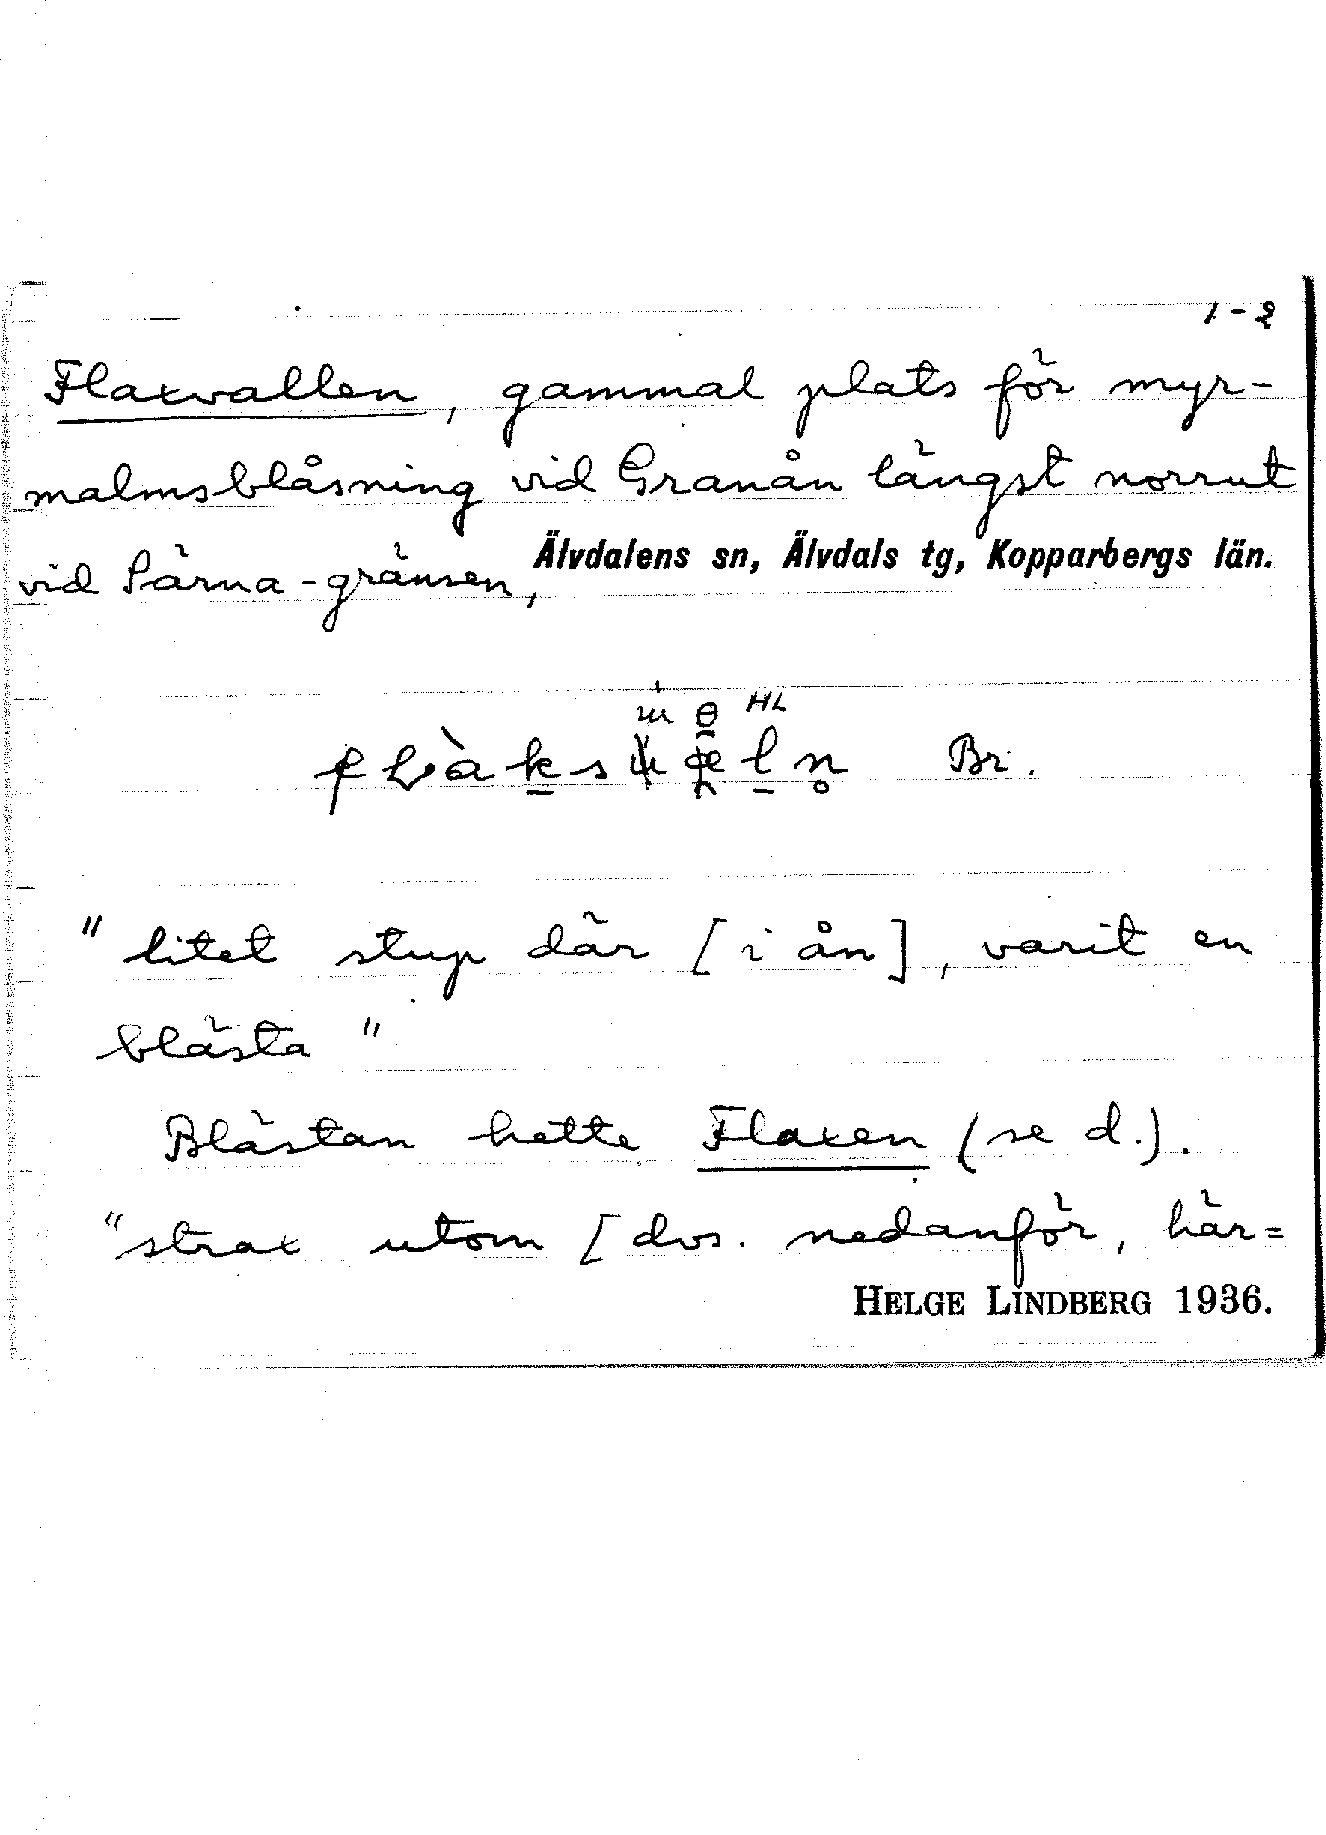 1-2
Flaxvallen, gammal plats för myr-
malmsblåsning vid Granån längst norrut
vid Särna-gränsen, Älvdalens sn, Älvdals tg, Kopparbergs län.
HL
Br.
"litet stup där [i ån], varit en
blästa"
Blästan hette Flaxen (se d.).
"strax utom [dvs. nedanför, här=
HELGE LINDBERG 1936.